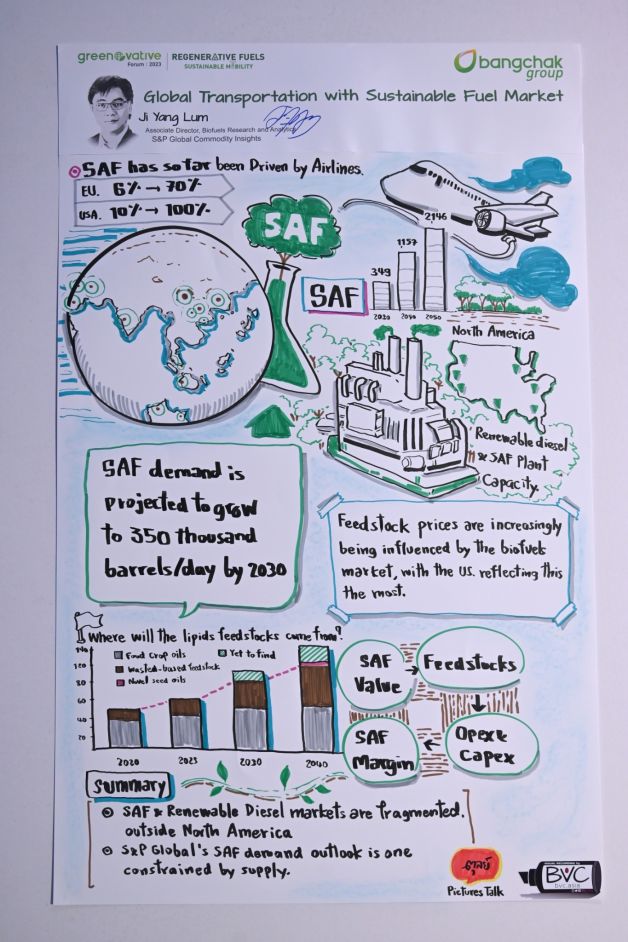 greenovative
Forum : 2023
REGENERATIVE FUELS
SUSTAINABLE MOBILITY
bangchak
group
Global Transportation with Sustainable Fuel Market
Ji Yang Lum
Associate Director, Biofuels Research and Analytics
S&P Global Commodity Insights
SAF has so far been Driven by Airlines.
EU. 6% → 70%
USA. 10% → 100%
SAF
2146
1157
349
SAF
2050
North America
Renewable diesel
& SAF Plant
Capacity.
SAF demand is
projected to grow
to 350 thousand
barrels/day by 2030
Feedstock prices are increasingly
being influenced by the biofuels
market, with the US. reflecting this
the most.
Where will the lipids feedstocks come from?
140
120
80
60
40
20
Food Crop oils
Yet to find
Wasted-based feedstock
Novel seed oils
2020 2023 2030 2040
SAF
Value
Feedstocks
Opex &
Capex
SAF
Margin
Summary
SAF & Renewable Diesel markets are fragmented.
outside North America
S&P Global's SAF demand outlook is one
constrained by supply.
ตุลย์
Pictures Talk
BVC
bvc.asia